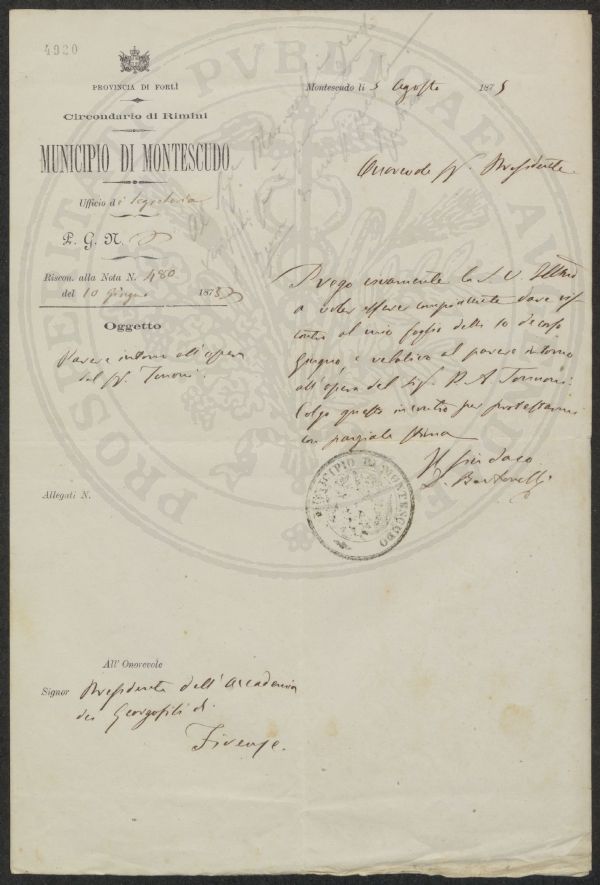 4920
PROVINCIA DI FORLÌ
Circondario di Rimini
MUNICIPIO DI MONTESCUDO
Ufficio di Segreteria
P. G. N.
Riscon. alla Nota N. 480
del 10 Giugno 1875
Oggetto
Parere intorno all'opera
del Sig.
Allegati N.
Montescudo li 5 Agosto 1875
Onorevole Sig. Presidente
Prego vivamente la S. V. Ill.ma
a voler essere compiacente dare ris
contro al mio foglio delli 10 decorso
Giugno e relativo al parere intorno
all'opera del Sig. P. A.
Colgo questo incontro per protestarmi
con parziale stima
Il Sindaco
MUNICIPIO DI MONTESCUDO
All' Onorevole
Signor Presidente dell'Accademia
dei Georgofili di
Firenze.
PROSPERITATI PUBLICAE AUGENDAE